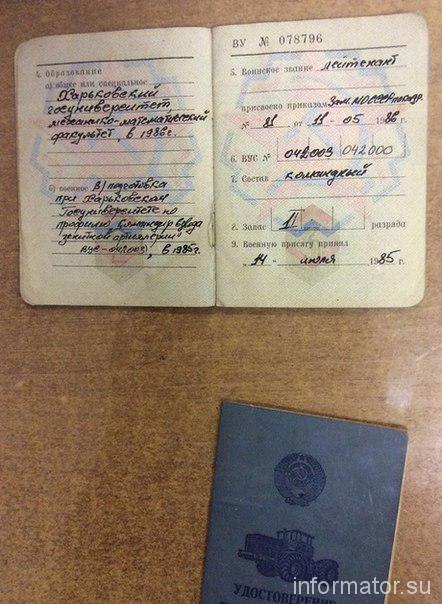 4. Образование
а) общее или специальное
Харьковский
госуниверситет,
механико-математический
факультет, в 1986г.
б) военное В/подготовка
при Харьковском
Госуниверситете по
профилю "командир взвода
зенитной артиллерии"
ВУС-042003, в 1985г.
ВУ № 078796
5. Воинское звание лейтенант
присвоено приказом Зам. МО СССР
№ 81 от 11-05 1986г.
6. ВУС № 042003 042000
7. Состав командный
8. Запас II разряда
9. Военную присягу принял
„14" июля 1985 г.
УДОСТОВЕРЕНИЕ
informator.su